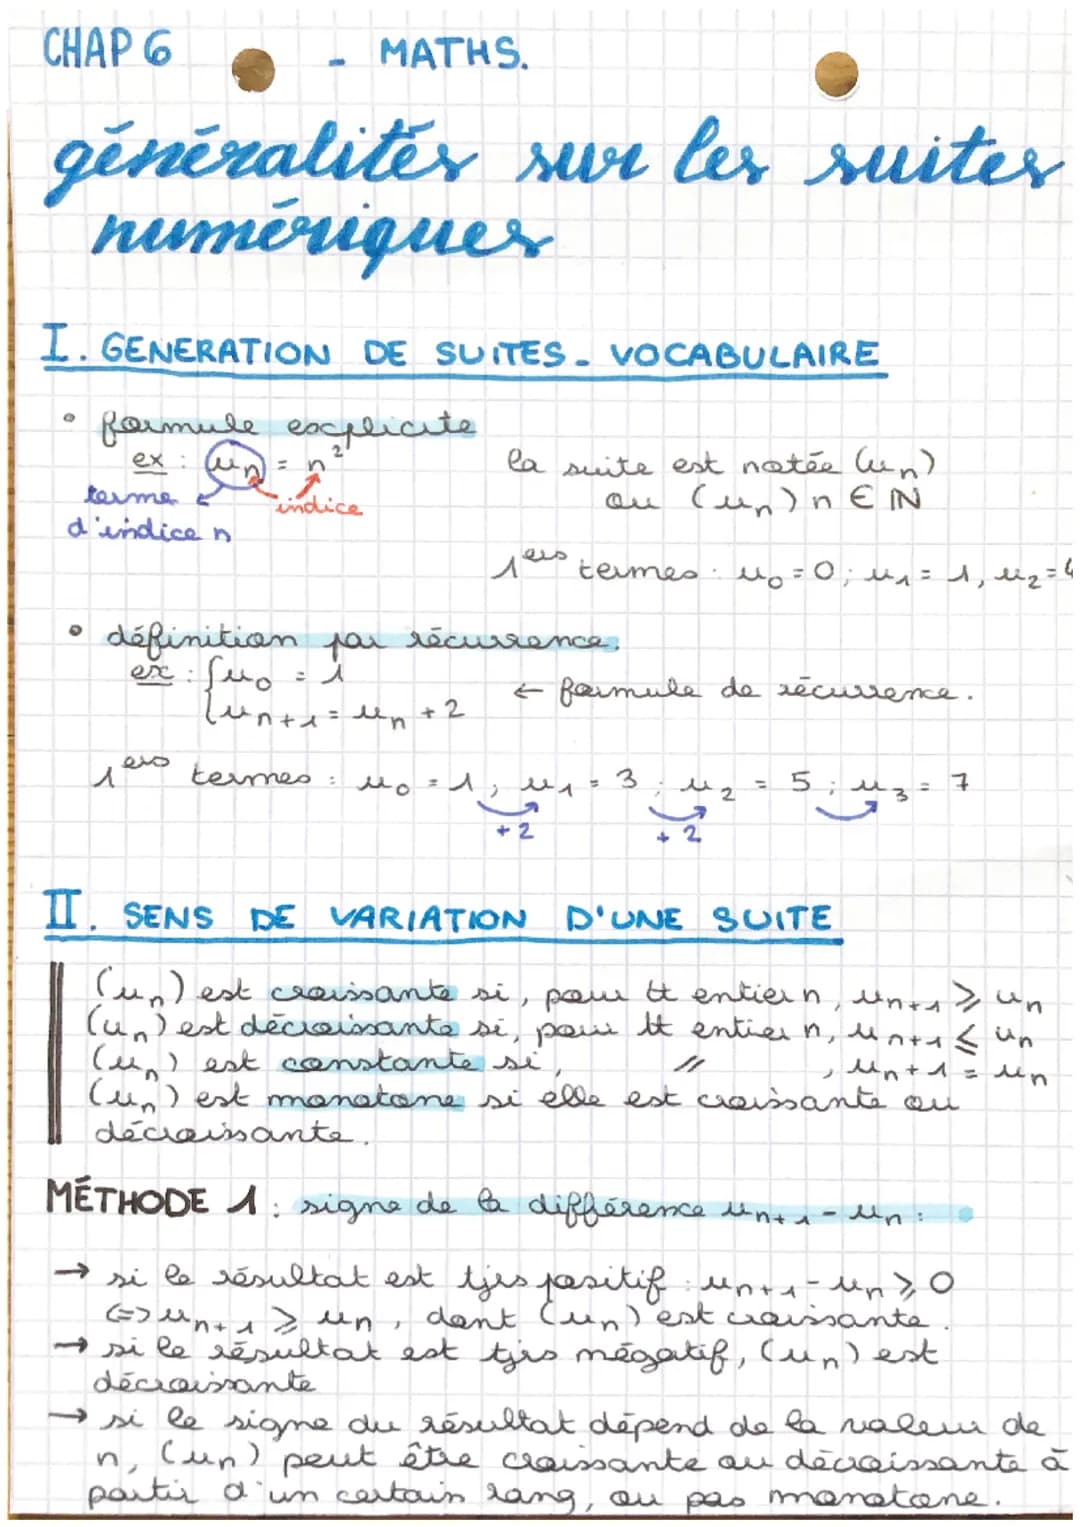 CHAP 6 - MATHS.
généralités sur les suites
numériques
I. GENERATION DE SUITES - VOCABULAIRE
• formule explicite
ex : un = n²
la suite est notée (un)
terme
indice
ou (un) n ∈ ℕ
d'indice n
1ers termes : u0 = 0 ; u1 = 1, u2 = 4
• définition par récurrence.
ex : { u0 = 1
← formule de récurrence.
un+1 = un + 2
1ers termes : u0 = 1 ; u1 = 3 ; u2 = 5 ; u3 = 7
+2 +2
II. SENS DE VARIATION D'UNE SUITE
(un) est croissante si, pour tt entier n, un+1 ⩾ un
(un) est décroissante si, pour tt entier n, un+1 ⩽ un
(un) est constante si, // , un+1 = un
(un) est monotone si elle est croissante ou
décroissante.
MÉTHODE 1 : signe de la différence un+1 - un :
→ si le résultat est tjrs positif : un+1 - un ⩾ 0
<=> un+1 ⩾ un, dont (un) est croissante.
→ si le résultat est tjrs négatif, (un) est
décroissante
→ si le signe du résultat dépend de la valeur de
n, (un) peut être croissante ou décroissante à
partir d'un certain rang, ou pas monotone.